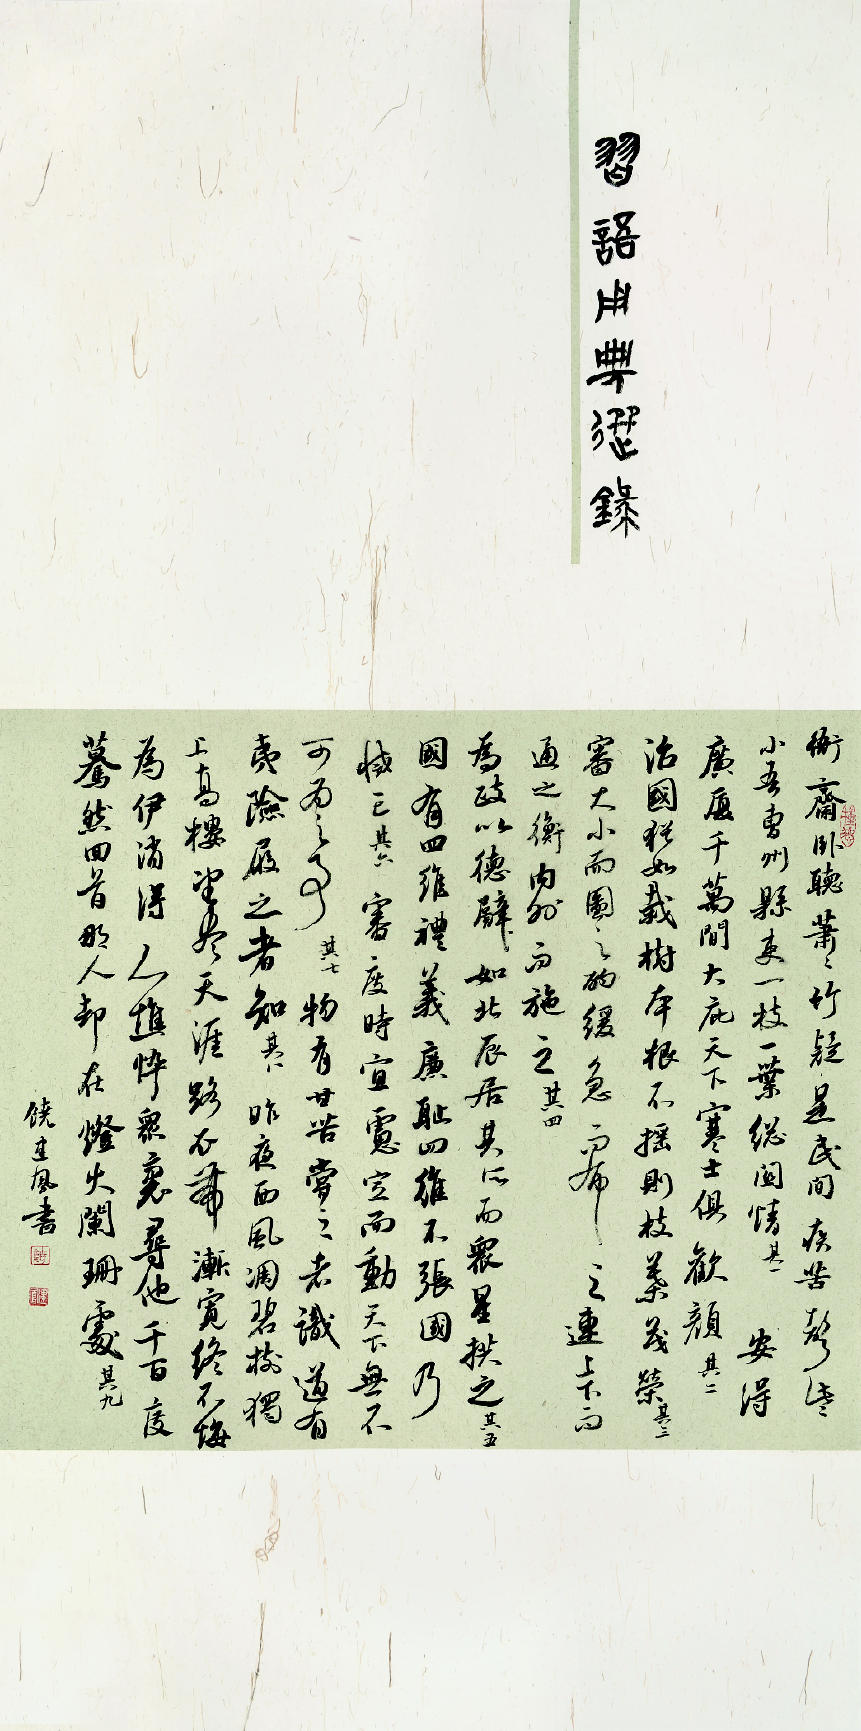 習語用典選錄
衙齋卧聽蕭々竹疑是民間疾苦聲些
小吾曹州縣吏一枝一葉總關情其一 安得
廣厦千萬間大庇天下寒士俱歡顏其二
治國猶如栽樹本根不摇則枝葉茂榮其三
審大小而圖之酌緩急而布之連上下而
通之衡内外而施之其四
為政以德譬如北辰居其所而衆星拱之其五
國有四維禮義廉耻四維不張國乃
滅亡其六 審度時宜慮定而動天下無不
可為之事其七 物有甘苦嘗之者識道有
夷險履之者知其八 昨夜西風凋碧樹獨
上高樓望盡天涯路衣帶漸寬終不悔
為伊消得人憔悴衆裏尋他千百度
驀然回首那人却在燈火闌珊處其九
饒建風書